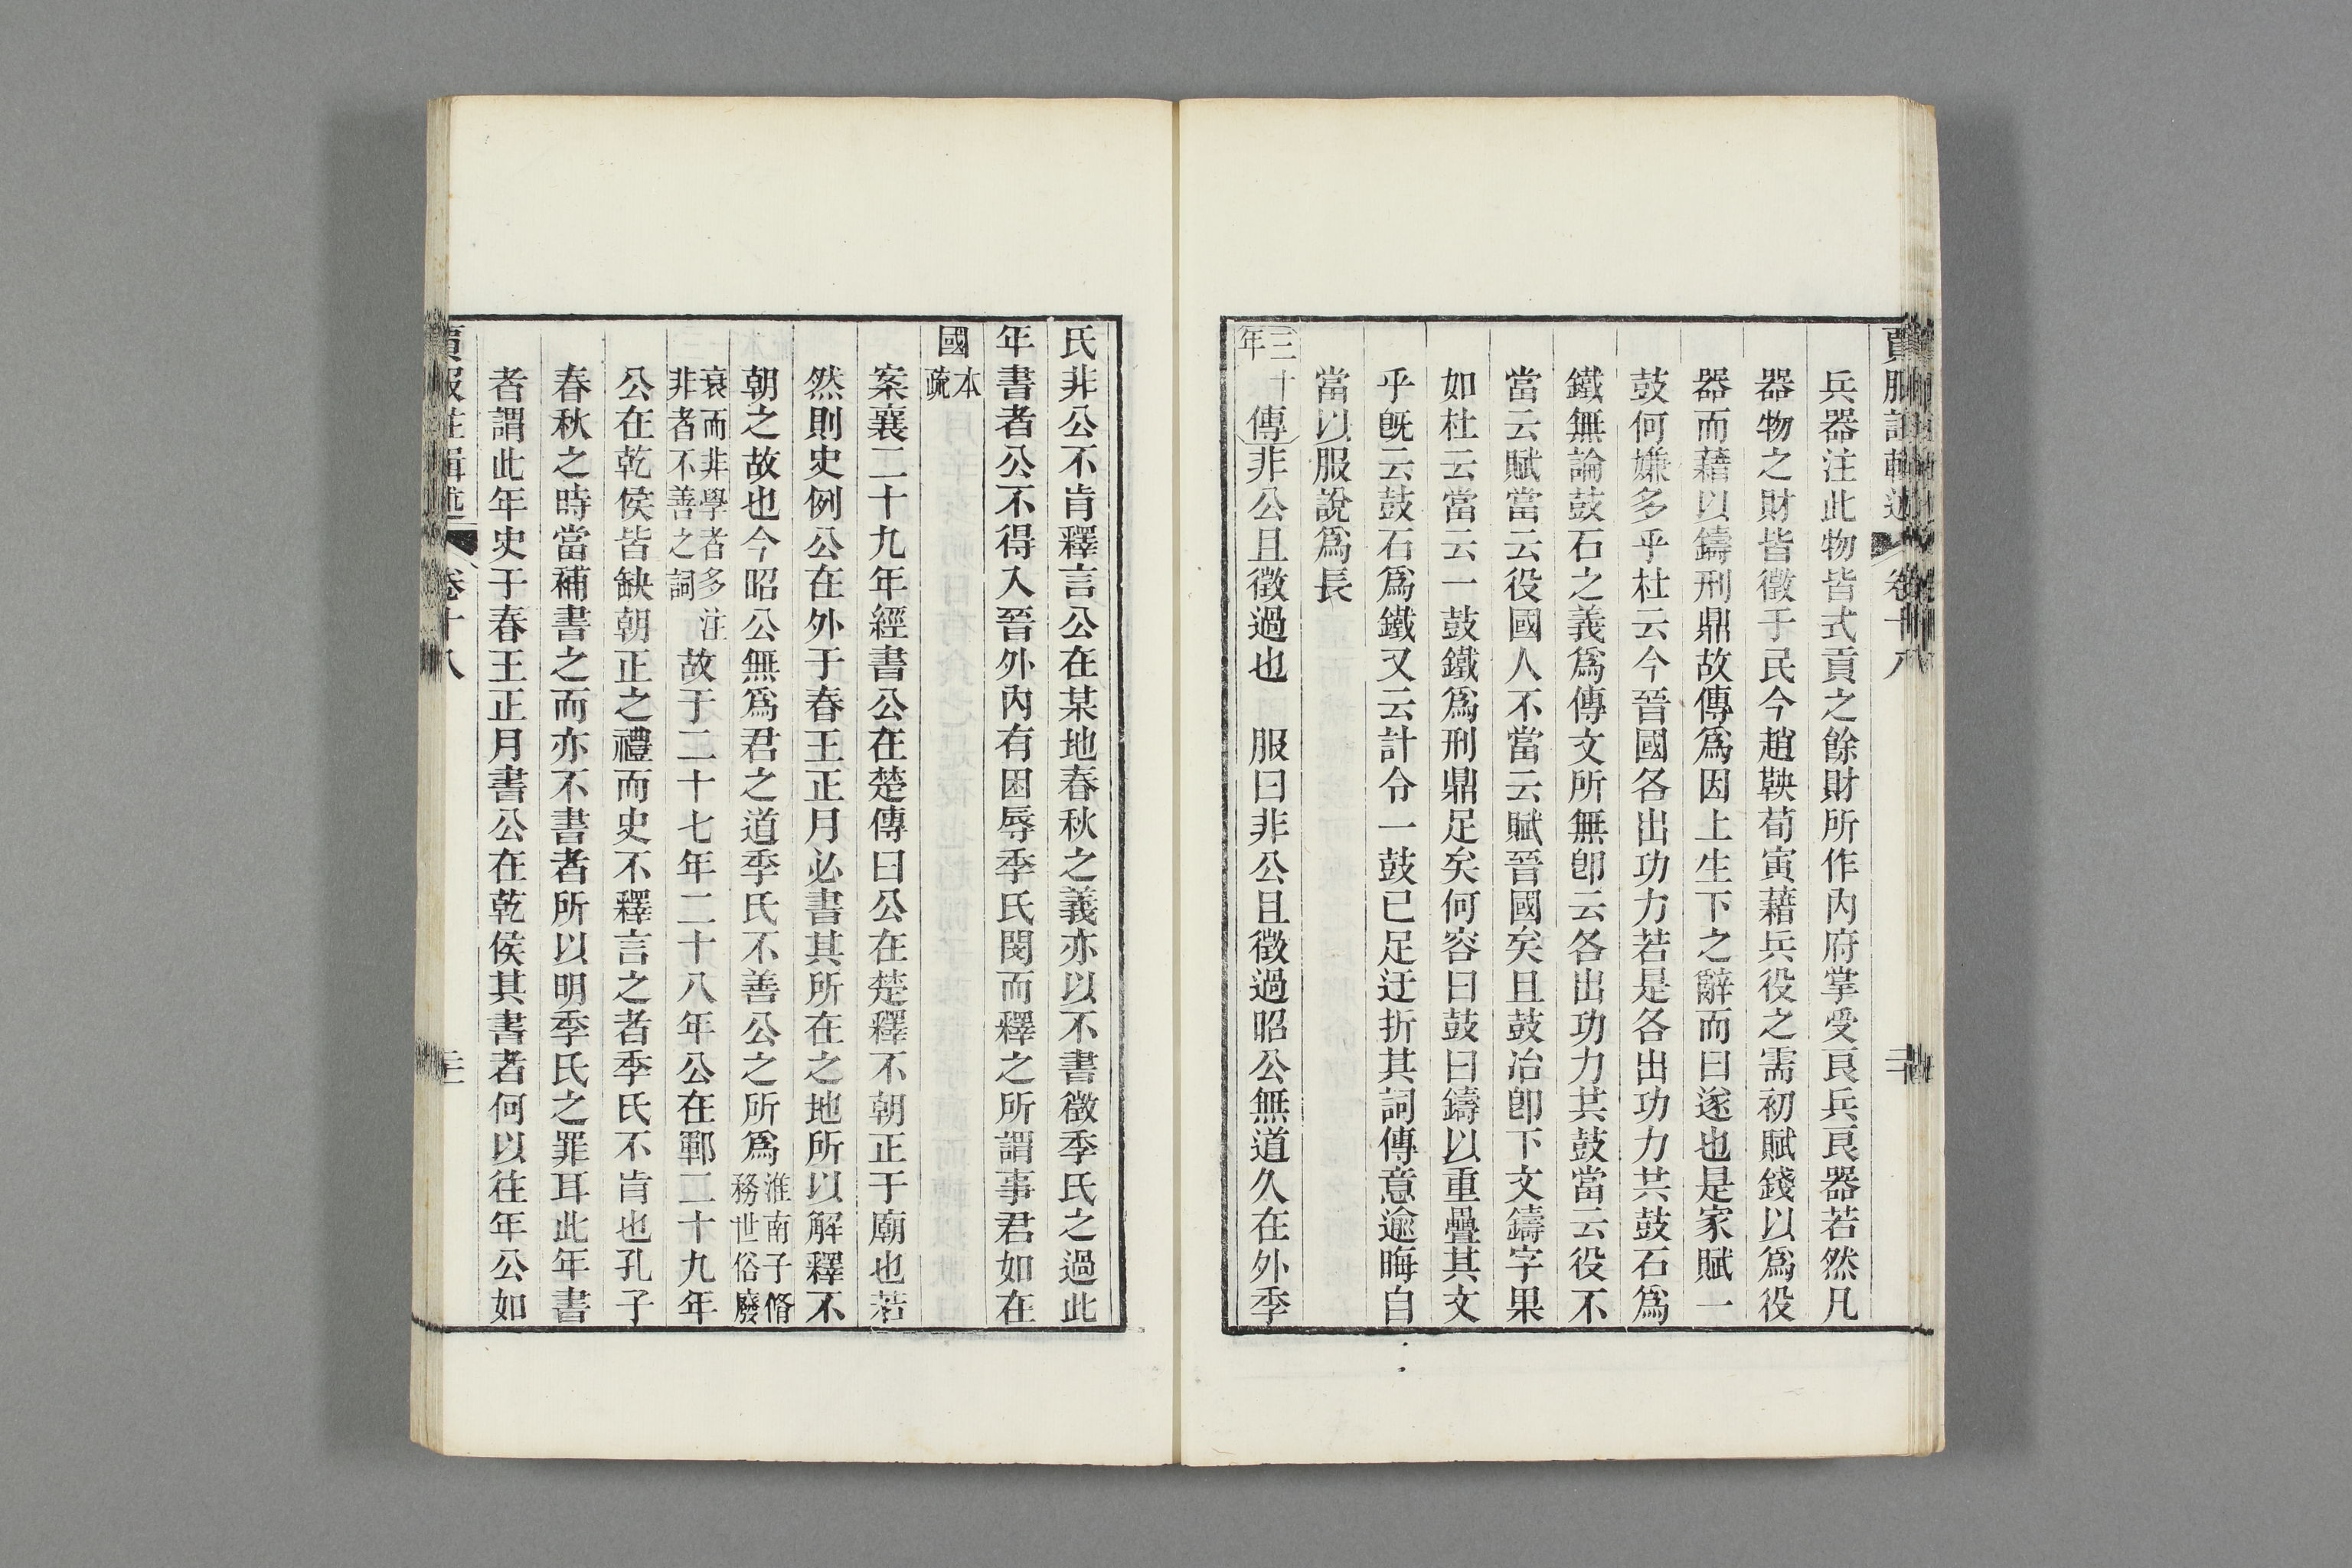 賈服注輯述 卷十八
兵器注此物皆式貢之餘財所作內府掌受良兵良器若然凡
器物之財皆徵于民今趙鞅荀寅藉兵役之需初賦錢以爲役
器而藉以鑄刑鼎故傳爲因上生下之辭而曰遂也是家賦一
鼓何嫌多乎杜云今晉國各出功力若是各出功力共鼓石爲
鐵無論鼓石之義爲傳文所無卽云各出功力共鼓當云役不
當云賦當云役國人不當云賦晉國矣且鼓冶卽下文鑄字果
如杜云當云一鼓鐵爲刑鼎足矣何容曰鼓曰鑄以重疊其文
乎旣云鼓石爲鐵又云計令一鼓已足迂折其詞傳意逾晦自
當以服說爲長
三十年傳非公且徵過也 服曰非公且徵過昭公無道久在外季
氏非公不肯釋言公在某地春秋之義亦以不書徵季氏之過此
年書者公不得入晉外內有困辱季氏閔而釋之所謂事君如在
國本疏
案襄二十九年經書公在楚傳曰公在楚釋不朝正于廟也若
然則史例公在外于春王正月必書其所在之地所以解釋不
朝之故也今昭公無爲君之道季氏不善公之所爲淮南子脩務世俗廢
衰而非學者多注非者不善之詞故于二十七年二十八年公在鄆二十九年
公在乾侯皆缺朝正之禮而史不釋言之者季氏不肯也孔子
春秋之時當補書之而亦不書者所以明季氏之罪耳此年書
者謂此年史于春王正月書公在乾侯其書者何以往年公如
卷十八